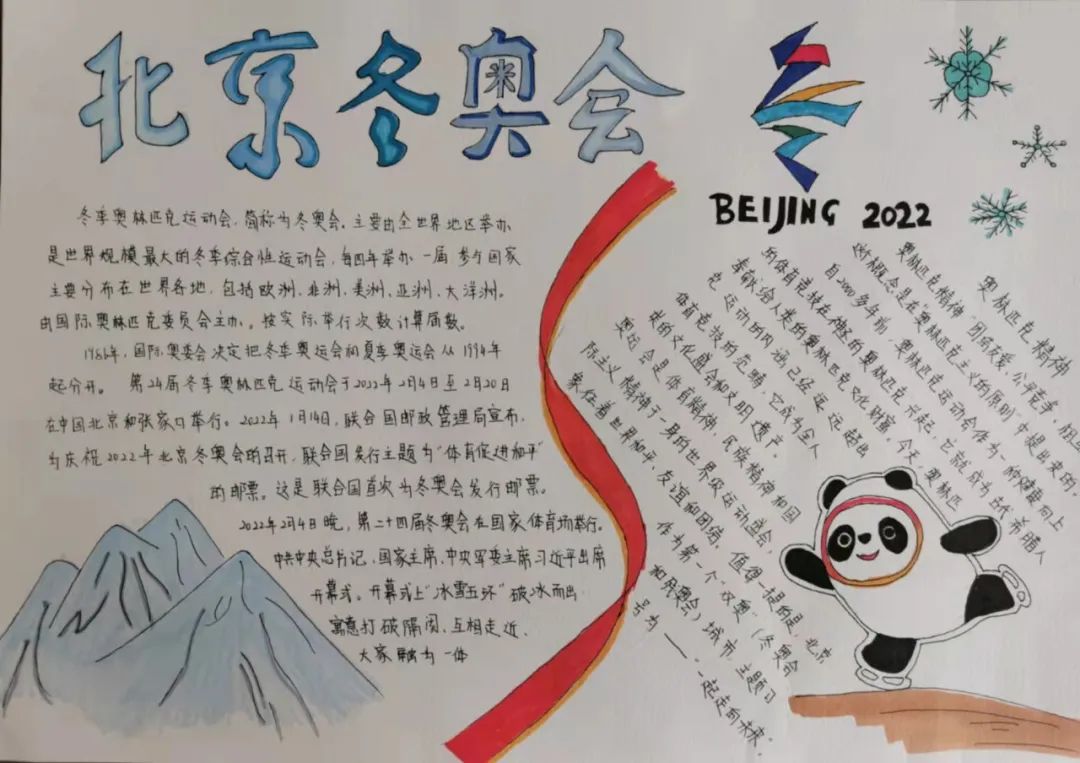 北京冬奥会
BEIJING 2022
冬季奥林匹克运动会，简称为冬奥会。主要由全世界地区举办
是世界规模最大的冬季综合性运动会，每四年举办一届 参与国家
主要分布在世界各地，包括欧洲、非洲、美洲、亚洲、大洋洲。
由国际奥林匹克委员会主办。按实际举行次数计算届数。
1986年，国际奥委会决定把冬季奥运会和夏季奥运会从1994年
起分开。 第24届冬季奥林匹克运动会于2022年2月4日至2月20日
在中国北京和张家口举行。2022年1月14日，联合国邮政管理局宣布，
为庆祝2022年北京冬奥会的召开，联合国发行主题为“体育促进和平”
的邮票。这是联合国首次为冬奥会发行邮票。
2022年2月4日晚，第二十四届冬奥会在国家体育场举行。
中共中央总书记，国家主席，中央军委主席习近平出席
开幕式。开幕式上“冰雪五环”破冰而出
寓意打破隔阂，互相走近，
大家融为一体
奥林匹克精神
奥林匹克精神“团结友爱，公平竞争，相互
的概念是在奥林匹克主义的原则”中提出来的。
自2000多年前，奥林匹克运动会作为一种健康向上
的体育竞技在神圣的奥林匹克兴起，它就成为古代希腊人
奉献给人类的奥林匹克文化财富。今天，奥林匹
克运动的内涵已经远远超出
体育竞技的范畴，它成为全人
类的文化盛会和文明遗产。
奥运会是体育精神、民族精神和国
际主义精神于一身的世界级运动盛会
象征着世界和平、友谊和团结。值得一提的是，北京
作为第一个“双奥”（冬奥会
和夏奥会）城市，主题口
号为——一起走向未来。